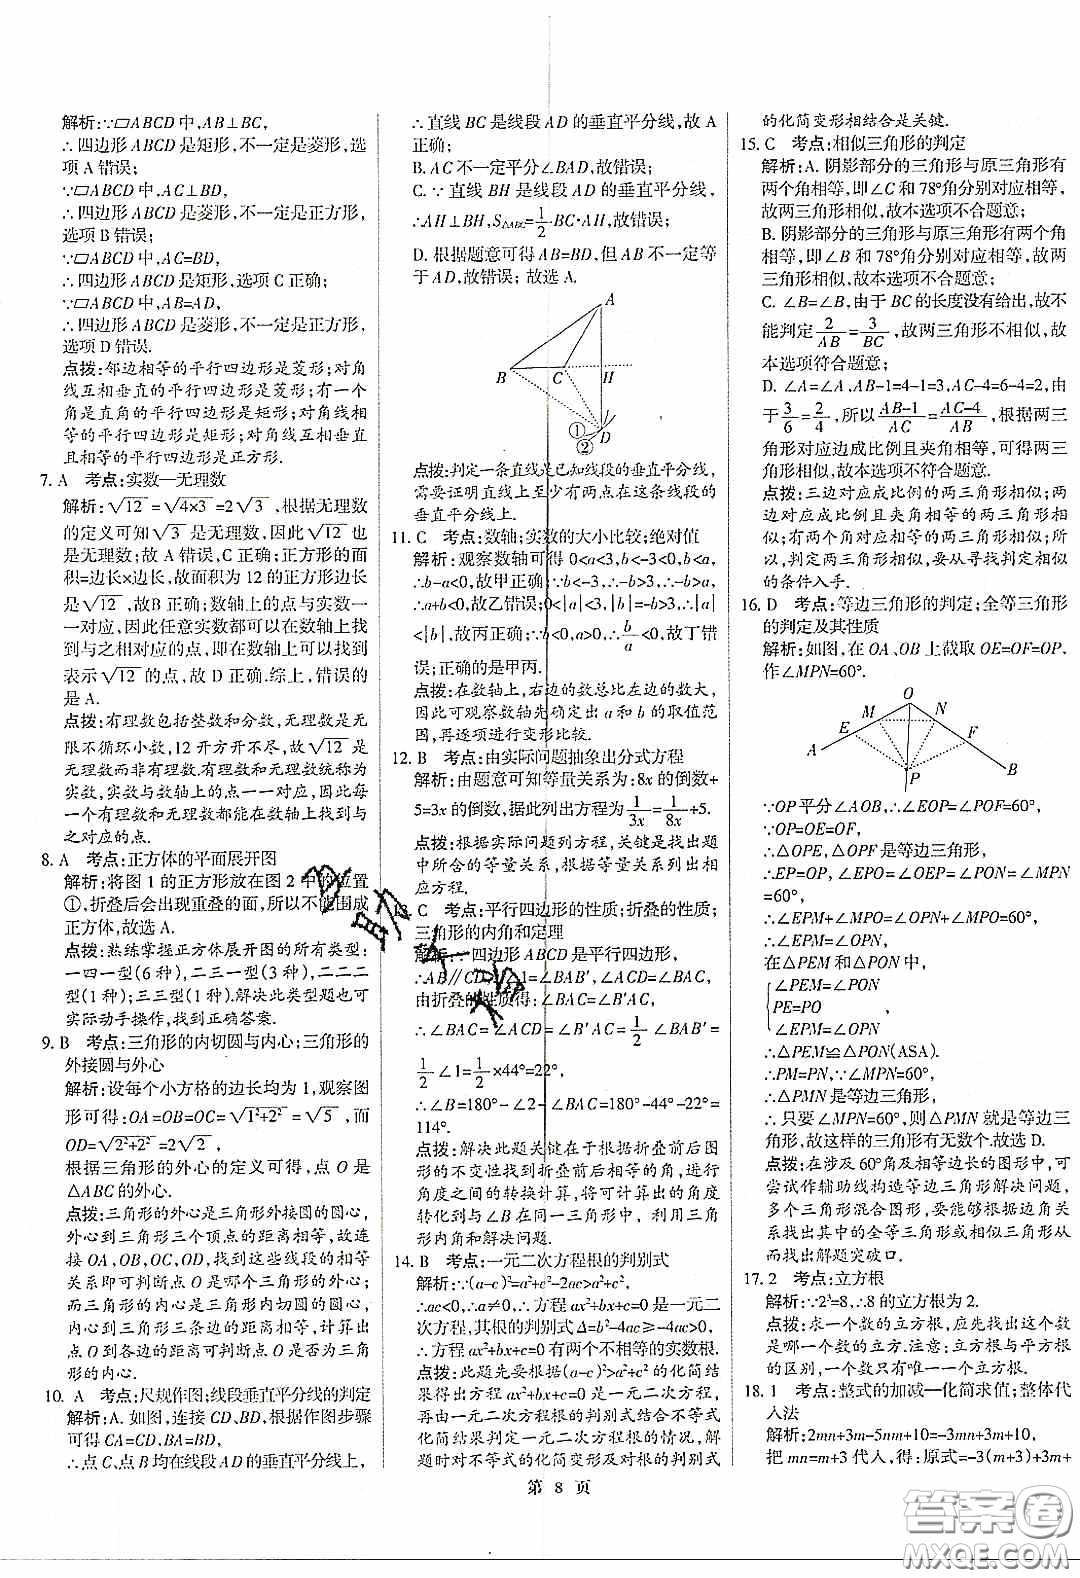 解析:∵▱ABCD中,AB⊥BC,
∴四边形ABCD是矩形,不一定是菱形,选
项A错误;
∵▱ABCD中,AC⊥BD,
∴四边形ABCD是菱形,不一定是正方形,
选项B错误;
∵▱ABCD中,AC=BD,
∴四边形ABCD是矩形,选项C正确;
∵▱ABCD中,AB=AD,
∴四边形ABCD是菱形,不一定是正方形,
选项D错误.
点拨:邻边相等的平行四边形是菱形;对角
线互相垂直的平行四边形是菱形;有一个
角是直角的平行四边形是矩形;对角线相
等的平行四边形是矩形;对角线互相垂直
且相等的平行四边形是正方形.
7. A 考点:实数—无理数
解析:√12=√4×3=2√3,根据无理数
的定义可知√3是无理数,因此√12也
是无理数;故A错误,C正确;正方形的面
积=边长×边长,故面积为12的正方形边长
是√12,故B正确;数轴上的点与实数一
一对应,因此任意实数都可以在数轴上找
到与之相对应的点,即在数轴上可以找到
表示√12的点,故D正确.综上,错误的
是A.
点拨:有理数包括整数和分数,无理数是无
限不循环小数,12开方开不尽,故√12是
无理数而非有理数.有理数和无理数统称为
实数,实数与数轴上的点一一对应,因此,
每一个有理数和无理数都能在数轴上找到与
之对应的点.
8. A 考点:正方体的平面展开图
解析:将图1的正方形放在图2中的位置
①,折叠后会出现重叠的面,所以不能围成
正方体,故选A.
点拨:熟练掌握正方体展开图的所有类型:
一四一型(6种),二三一型(3种),二二二
型(1种);三三型(1种).解决此类型题也可
实际动手操作,找到正确答案.
9. B 考点:三角形的内切圆与内心;三角形的
外接圆与外心
解析:设每个小方格的边长均为1,观察图
形可得:OA=OB=OC=√1²+2²=√5,而
OD=√2²+2²=2√2,
根据三角形的外心的定义可得,点O是
△ABC的外心.
点拨:三角形的外心是三角形外接圆的圆心,
外心到三角形三个顶点的距离相等,故连
接OA,OB,OC,OD,找出这些线段的相等
关系即可判断点O是哪个三角形的外心;
而三角形的内心是三角形内切圆的圆心,
内心到三角形三条边的距离相等,计算出
点到各边的距离可判断点O是否为三角
形的内心.
10. A 考点:尺规作图;线段垂直平分线的判定
解析:A. 如图,连接CD,BD,根据作图步骤
可得CA=CD,BA=BD,
∴点C、点B均在线段AD的垂直平分线上,
∴直线BC是线段AD的垂直平分线,故A
正确;
B. AC不一定平分∠BAD,故错误;
C. ∵直线BH是线段AD的垂直平分线,
∴AH⊥BH,S△ABC=1/2·BC·AH,故错误;
D. 根据题意可得AB=BD,但AB不一定等
于AD,故错误;故选A.
A
B
C
H
D
①
②
点拨:判定一条直线是已知线段的垂直平分线,
需要证明直线上至少有两点在这条线段的
垂直平分线上.
11. C 考点:数轴;实数的大小比较;绝对值
解析:观察数轴可得0<a<3,b<-3<0,b<a,
∴b-a<0,故甲正确;∵b<-3,∴-b>3,∴-b>a,
∴a+b<0,故乙错误;0<|a|<3,|b|=-b>3,∴|a|
<|b|,故丙正确;∵b<0,a>0,∴b/a<0,故丁错
误;正确的是甲丙.
点拨:在数轴上,右边的数总比左边的数大,
因此可观察数轴先确定出a和b的取值范
围,再逐项进行变形比较.
12. B 考点:由实际问题抽象出分式方程
解析:由题意可知等量关系为:8x的倒数+
5=3x的倒数,据此列出方程为1/3x=1/8x+5.
点拨:根据实际问题列方程,关键是找出题
中所含的等量关系,根据等量关系列出相
应方程.
13. C 考点:平行四边形的性质;折叠的性质;
三角形的内角和定理
解析:∵四边形ABCD是平行四边形,
∴AB∥CD,∴∠1=∠BAB′,∠ACD=∠BAC,
由折叠的性质得:∠BAC=∠B′AC,
∴∠BAC=∠ACD=∠B′AC=1/2∠BAB′=
1/2∠1=1/2×44°=22°,
∴∠B=180°-∠2-∠BAC=180°-44°-22°=
114°.
点拨:解决此题关键在于根据折叠前后图
形的不变性找到折叠前后相等的角,进行
角度之间的转换计算,将可以求出的角度
转化到与∠B在同一三角形中,利用三角
形内角和解决问题.
14. B 考点:一元二次方程根的判别式
解析:∵(a-c)²=a²+c²-2ac>a²+c²,
∴ac<0,∴a≠0,∴方程ax²+bx+c=0是一元二
次方程,其根的判别式Δ=b²-4ac≥-4ac>0,
∴方程ax²+bx+c=0有两个不相等的实数根.
点拨:此题先要根据(a-c)²>a²+c²的化简结
果得出方程ax²+bx+c=0是一元二次方程,
再由一元二次方程根的判别式结合不等式
的化简结果判定一元二次方程根的情况,解
题时对不等式的化简变形及对根的判别式
的化简变形相结合是关键.
15. C 考点:相似三角形的判定
解析:A. 阴影部分的三角形与原三角形有
两个角相等,即∠C和78°角分别对应相等,
故两三角形相似,故本选项不合题意;
B. 阴影部分的三角形与原三角形有两个角
相等,即∠B和78°角分别对应相等,故两
三角形相似,故本选项不合题意;
C. ∠B=∠B,由于BC的长度没有给出,故不
能判定2/AB=3/BC,故两三角形不相似,故
本选项符合题意;
D. ∠A=∠A,AB-1=4-1=3,AC-4=6-4=2,由
于3/6=2/4,所以AB-1/AC=AC-4/AB,根据两三
角形对应边成比例且夹角相等,可得两三角
形相似,故本选项不符合题意.
点拨:三边对应成比例的两三角形相似;两
边对应成比例且夹角相等的两三角形相
似;有两个角对应相等的两三角形相似;所
以,判定两三角形相似,要从寻找判定相似
的条件入手.
16. D 考点:等边三角形的判定;全等三角形
的判定及其性质
解析:如图,在OA、OB上截取OE=OF=OP,
作∠MPN=60°.
O
M
N
E
F
A
P
B
∵OP平分∠AOB,∴∠EOP=∠POF=60°,
∵OP=OE=OF,
∴△OPE,△OPF是等边三角形,
∴EP=OP,∠EPO=∠OEP=∠PON=∠MPN
=60°,
∴∠EPM+∠MPO=∠OPN+∠MPO=60°,
∴∠EPM=∠OPN,
在△PEM和△PON中,
∠PEM=∠PON
PE=PO,
∠EPM=∠OPN
∴△PEM≌△PON(ASA).
∴PM=PN,∵∠MPN=60°,
∴△PMN是等边三角形,
∴只要∠MPN=60°,则△PMN就是等边三
角形,故这样的三角形有无数个.故选D.
点拨:在涉及60°角及相等边长的图形中,可
尝试作辅助线构造等边三角形解决问题,
多个三角形混合图形,要能够根据边角关
系找出其中的全等三角形或相似三角形从
而找出解题突破口.
17. 2 考点:立方根
解析:∵2³=8,∴8的立方根为2.
点拨:求一个数的立方根,应先找出这个数是
哪一个数的立方.注意:立方根与平方根
的区别,一个数只有唯一一个立方根.
18. 1 考点:整式的加减—化简求值;整体代
入法
解析:2mn+3m-5nm+10=-3mn+3m+10,
把mn=m+3代入,得:原式=-3(m+3)+3m+
第 8 页
答案圈
MXQE.COM